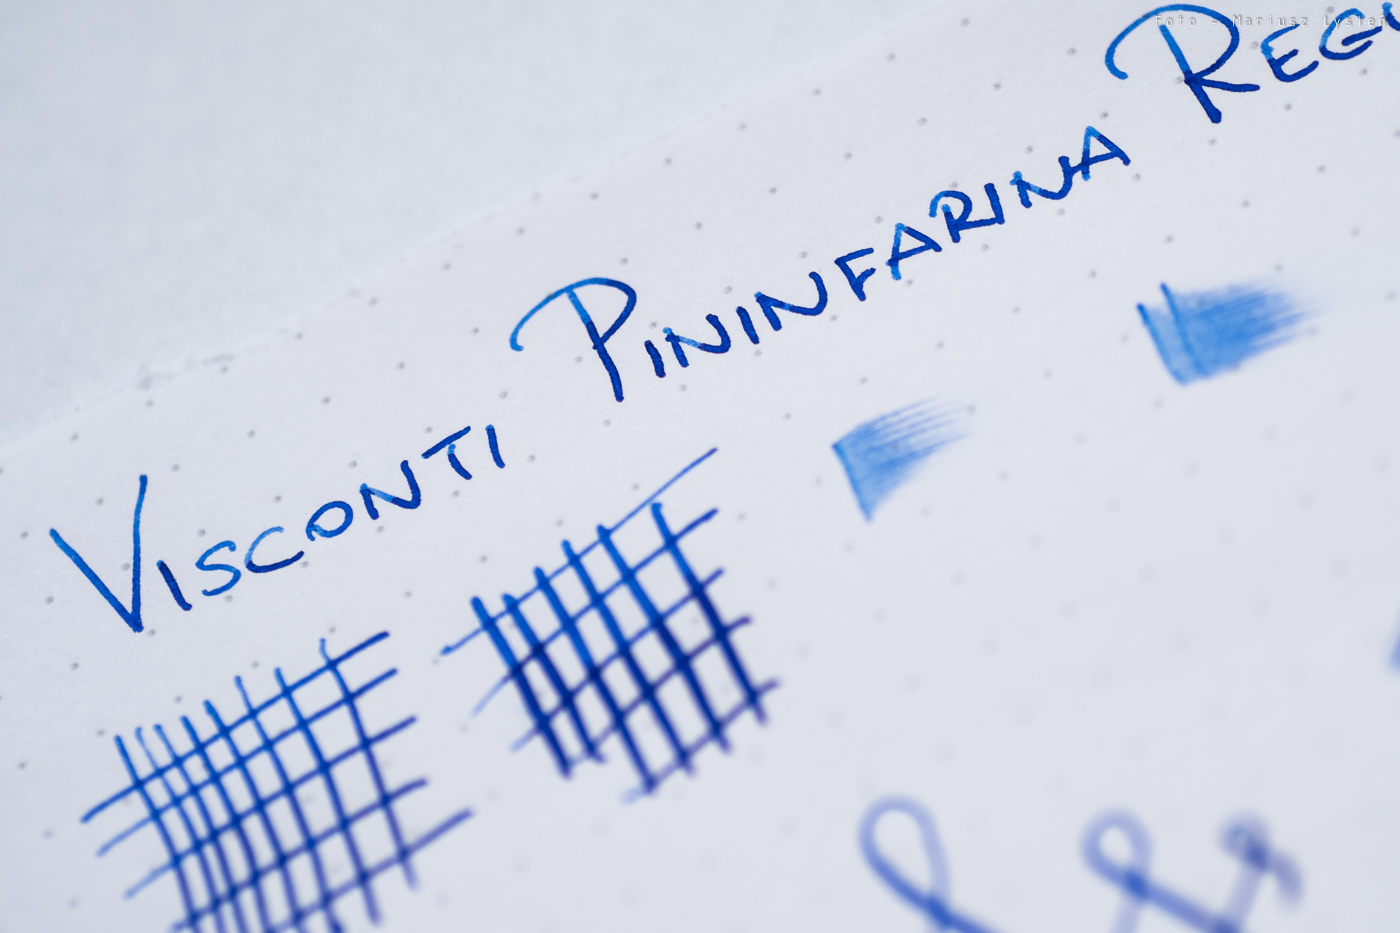 Foto - Mariusz Łysień
VISCONTI PININFARINA REGU